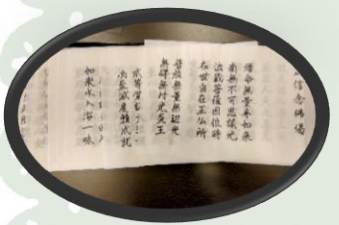 信念佛偈
帰命無量寿如来
南無不可思議光
法蔵菩薩因位時
在世自在王仏所
普放無量無辺光
無碍無対光炎王
成等覚証
必至滅度願成就
如衆水入海一味